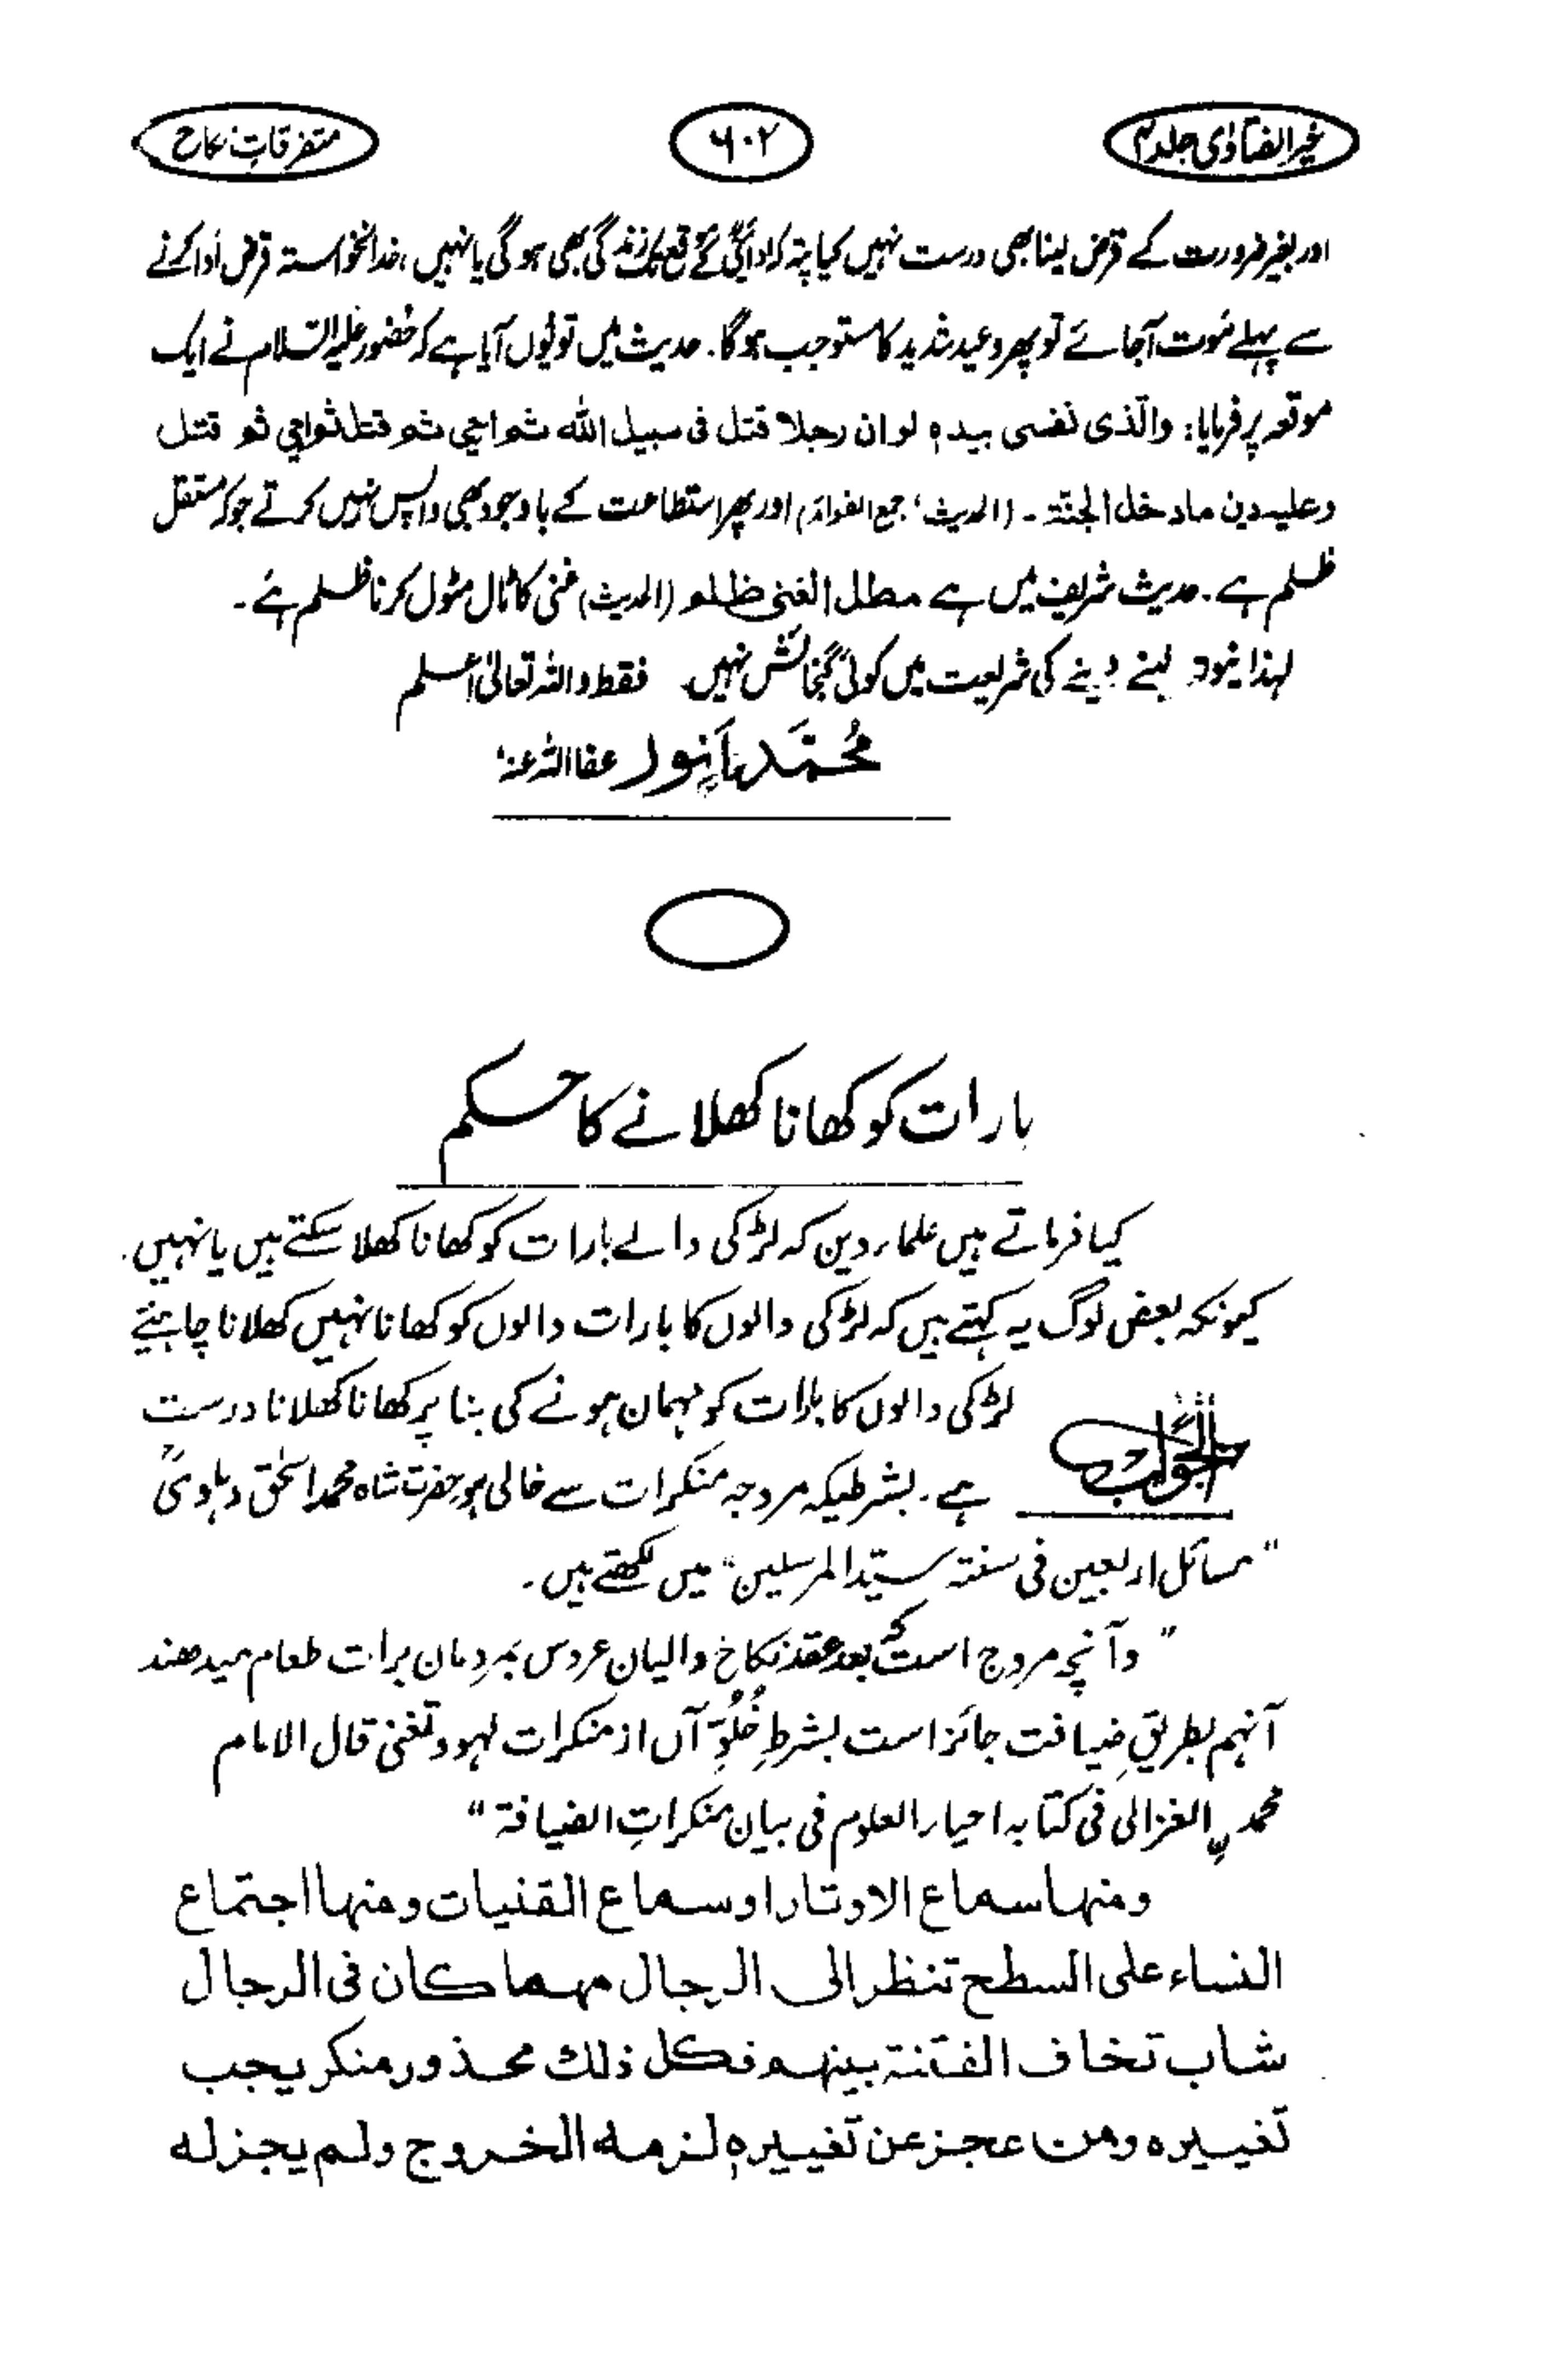 خیر الفتاوٰی جلد ۴
۶۰۲
متفرقاتِ نکاح
اور بغیر ضرورت کے قرض لینا بھی درست نہیں کیا پتہ کہ ادائیگی کے موقع تک زندگی بھی ہوگی یا نہیں، خدانخواستہ قرض ادا کرنے
سے پہلے موت آجائے تو پھر وعید شدید کا مستوجب ہوگا۔ حدیث میں تو یوں آیا ہے کہ حضور علیہ السلام نے ایک
موقعہ پر فرمایا: والّذی نفسی بیدہٖ لو ان رجلا قتل فی سبیل اللہ ثم احیی ثم قتل ثم احیی ثم قتل
وعلیہ دین ما دخل الجنۃ۔ (الحدیث، جمع الفوائد) اور پھر استطاعت کے باوجود بھی واپس نہیں کرتے جو کہ مستقل
ظلم ہے۔ حدیث شریف میں ہے مطل الغنی ظلم (الحدیث) غنی کا ٹال مٹول کرنا ظلم ہے۔
لہذا نیوتہ لینے دینے کی شریعت میں کوئی گنجائش نہیں۔ فقط واللہ تعالیٰ اعلم
مُحمّد انور عفا اللہ عنہ
بارات کو کھانا کھلانے کا حکم
کیا فرماتے ہیں علماء دین کہ لڑکی والے بارات کو کھانا کھلا سکتے ہیں یا نہیں۔
کیونکہ بعض لوگ یہ کہتے ہیں کہ لڑکی والوں کا بارات والوں کو کھانا نہیں کھلانا چاہیئے
الجواب لڑکی والوں کا بارات کو مہمان ہونے کی بنا پر کھانا کھلانا درست
ہے۔ بشرطیکہ مروجہ منکرات سے خالی ہو حضرت شاہ محمد اسحٰق دہلویؒ
"مسائل اربعین فی سنتہ سیّد المرسلین" میں لکھتے ہیں۔
"وآنچہ مروج است کہ بعد عقد نکاح والیان عروس بمردمان برات طعام میدھند
آنہم بطریقِ ضیافت جائز است بشرطِ خُلُوِّ آں از منکرات لہو و تغنی قال الامام
محمد نِ الغزالی فی کتابہ احیاء العلوم فی بیان منکراتِ الضیافۃ"
ومنھا سماع الاوتار او سماع القنیات ومنھا اجتماع
النساء علی السطح تنظر الی الرجال مھما کان فی الرجال
شاب تخاف الفتنۃ بینھم فکل ذلك محذور منکر یجب
تغییرہ ومن عجز عن تغییرہٖ لزمہ الخروج ولم یجز لہ